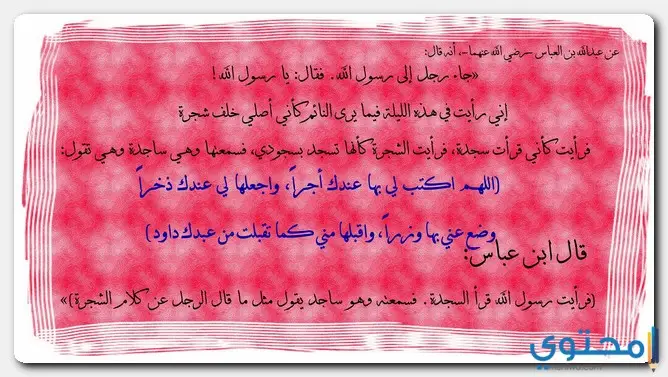 عن عبدالله بن العباس -رضي الله عنهما-، أنه قال:
«جاء رجل إلى رسول الله. فقال: يا رسول الله !
إني رأيت في هذه الليلة فيما يرى النائم كأني أصلي خلف شجرة
فرأيت كأني قرأت سجدة، فرأيت الشجرة كأنها تسجد بسجودي، فسمعتها وهي ساجدة وهي تقول:
(اللهم اكتب لي بها عندك أجراً، واجعلها لي عندك ذخراً
وضع عني بها وزراً، واقبلها مني كما تقبلت من عبدك داود)
قال ابن عباس:
(فرأيت رسول الله قرأ السجدة . فسمعته وهو ساجد يقول مثل ما قال الرجل عن كلام الشجرة)»
محتوي